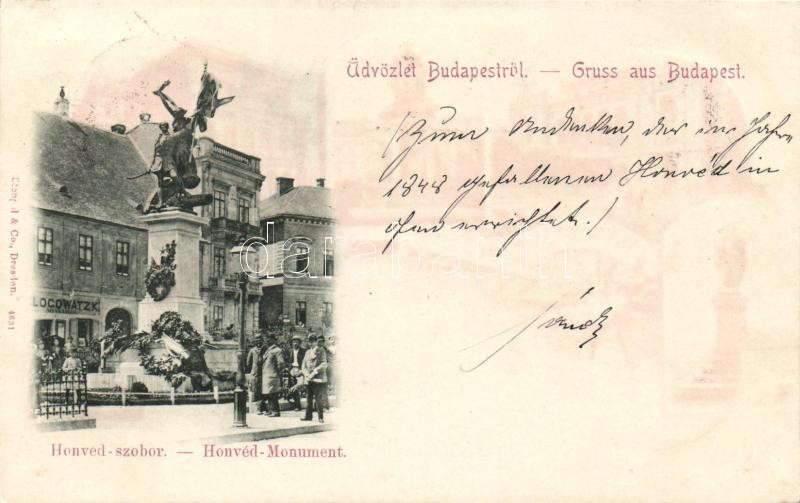 Üdvözlet Budapestről. — Gruss aus Budapest.
(Zum Andenken, der im Jahre
1848 gefallenen Honvéd in
Ofen errichtet.)
Stengel & Co., Dresden. 4631
LOGOWATZ K.
darabanth.com
Honved-szobor. — Honvéd-Monument.